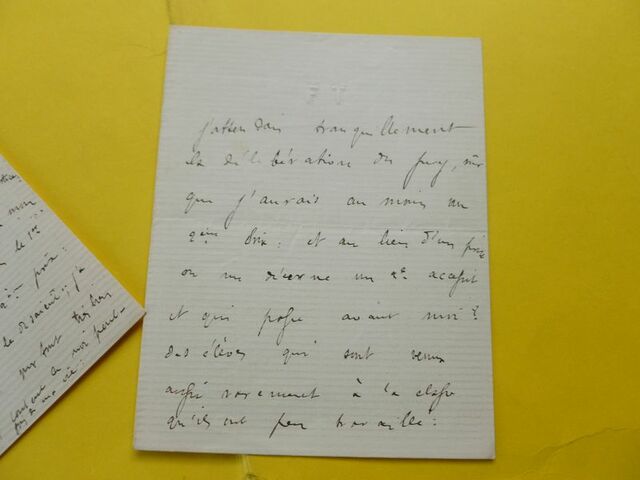 j'attendais tranquillement
la délibération du jury, sûr
que j'aurais au moins un
2ème Prix : et au lieu d'un prix
on me décerne un 2e accessit
et qui passe avant moi ?
des élèves qui sont venus
aussi rarement à la classe
qu'ils ont peu travaillé :
mon
le 1er
prix :
le disaient ; j'a
qui sont très bien